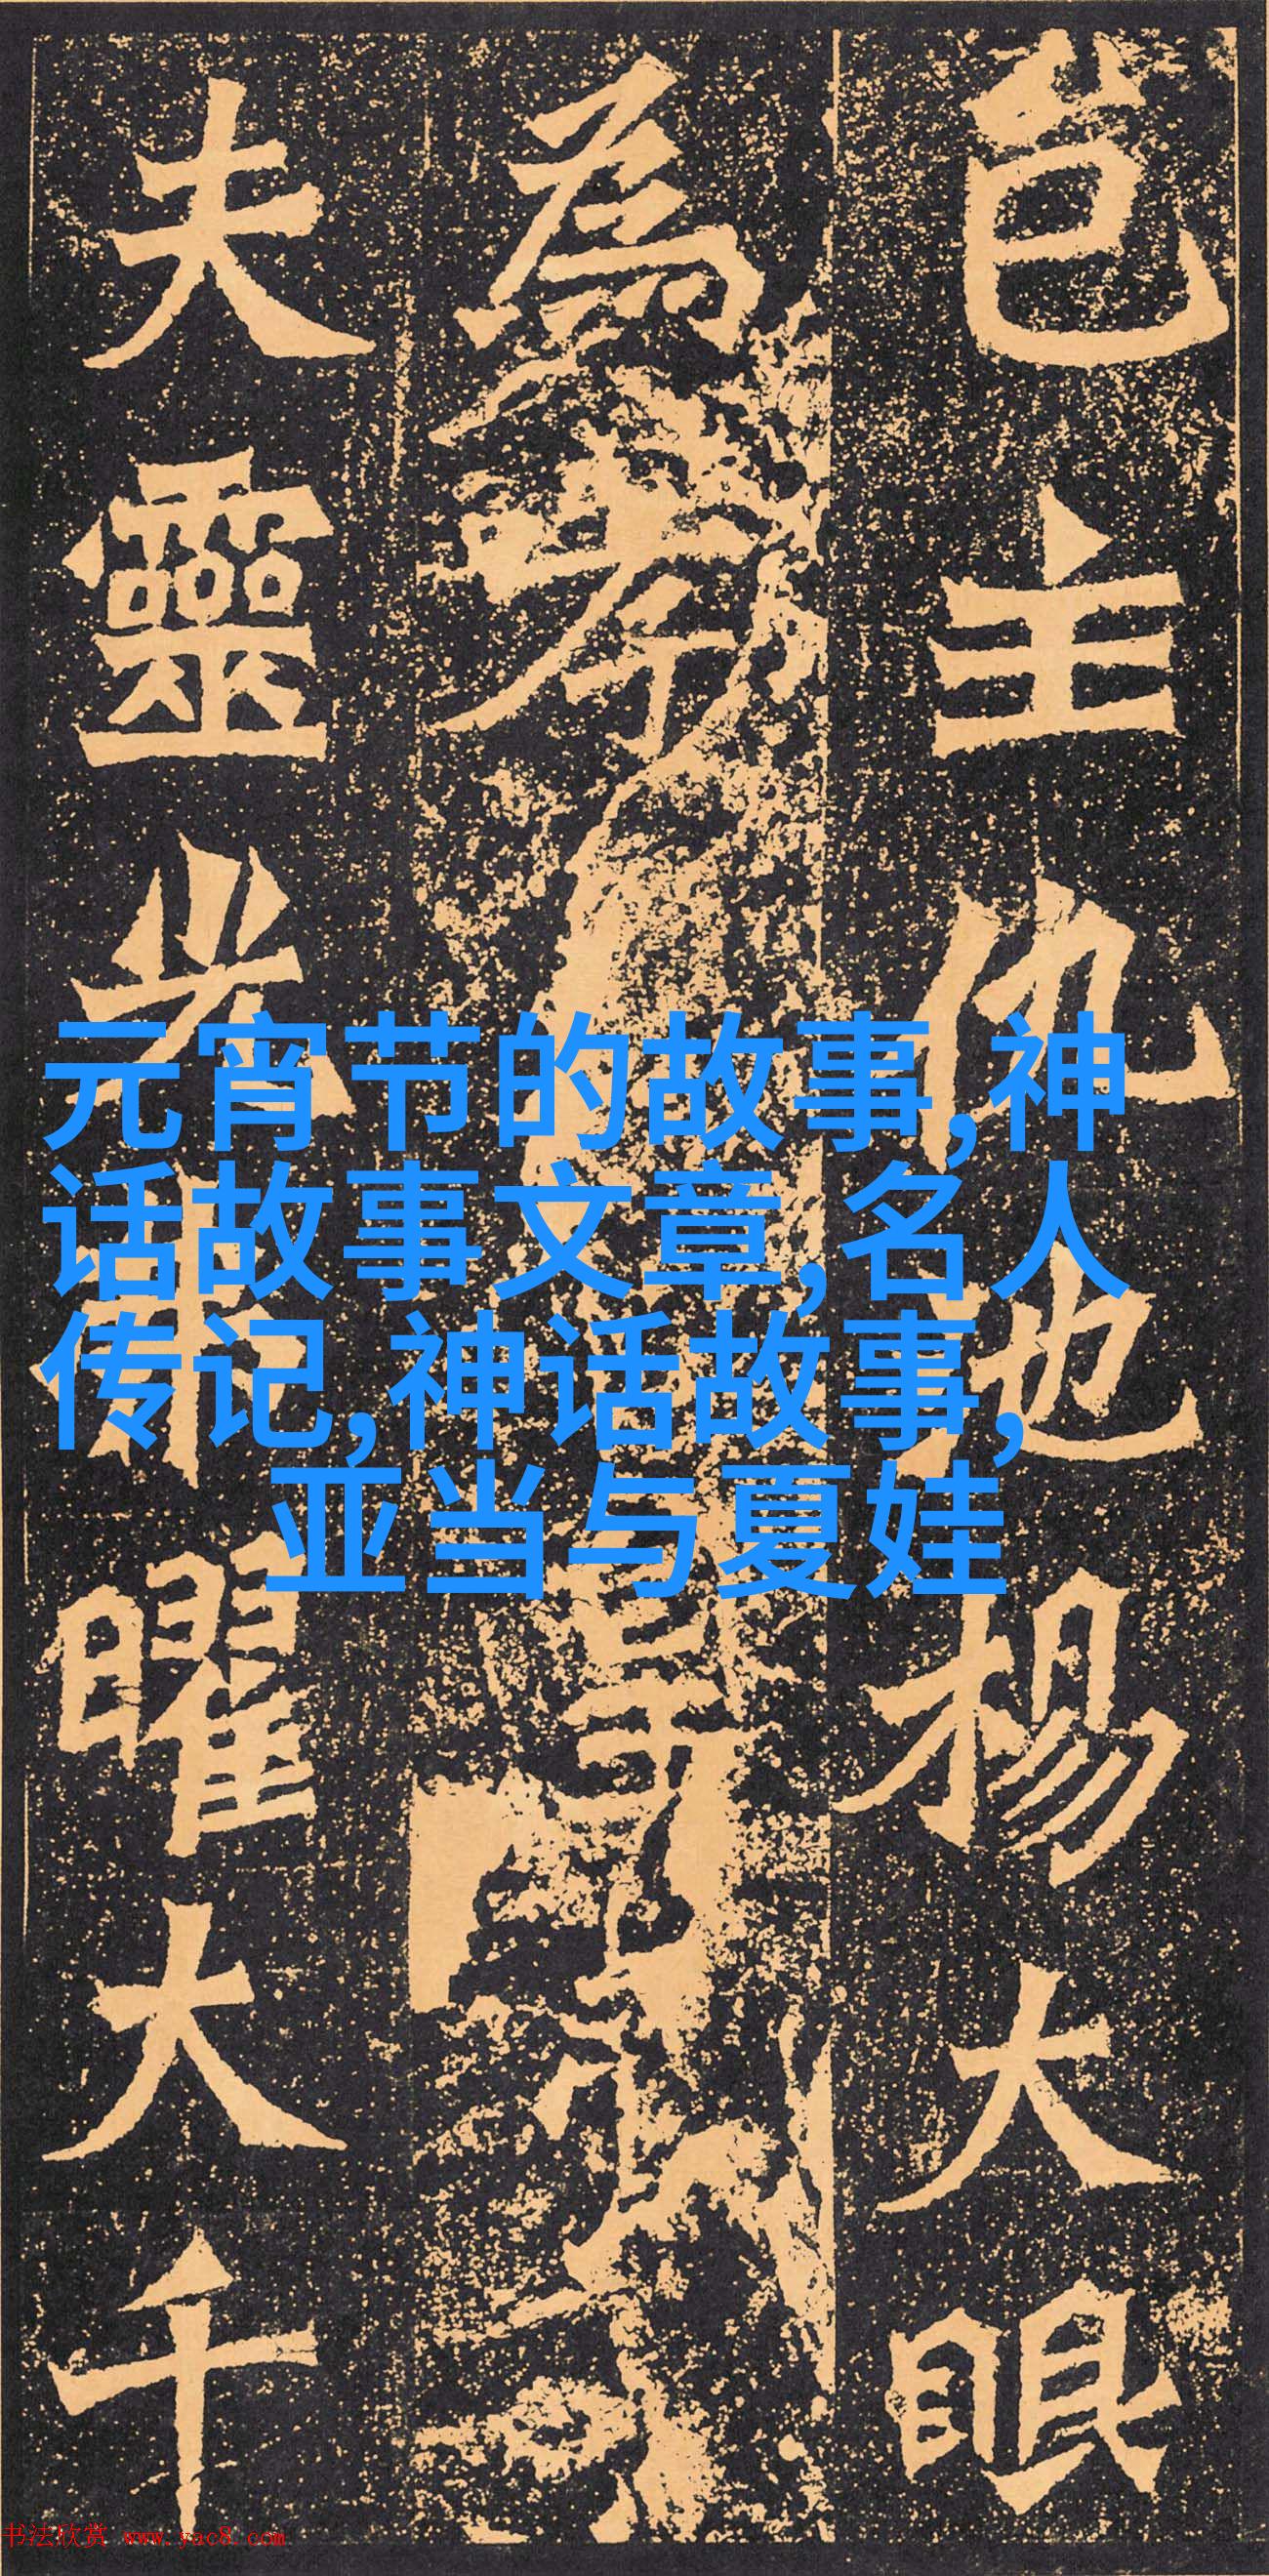 邑主仇池楊大眼
為孝
夫靈光弗曜大千
元宵节的故事,神
话故事文章,名人
传记,神话故事,
亚当与夏娃
书法欣赏 www.yac8.com